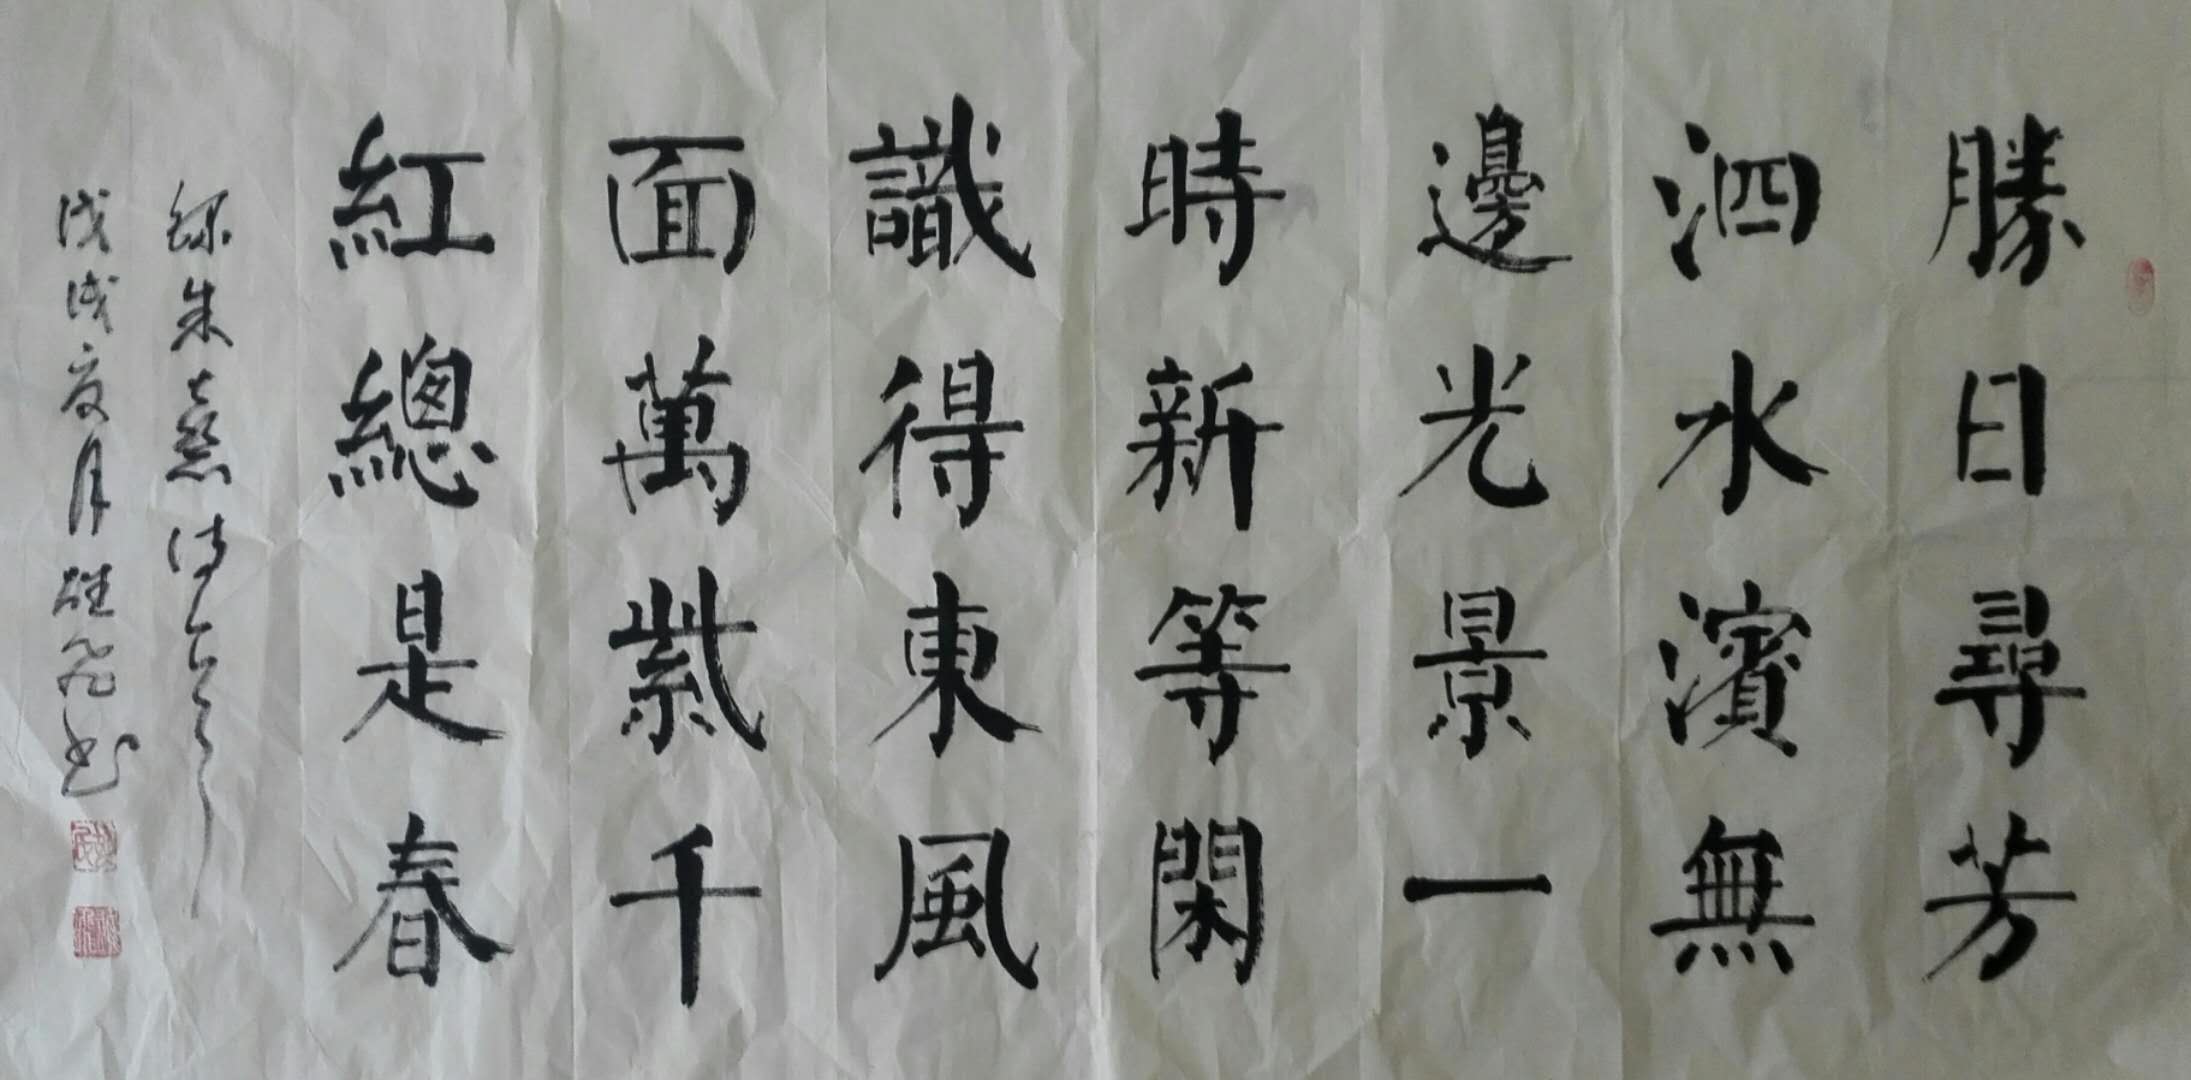 勝日尋芳
泗水濱無
邊光景一
時新等閑
識得東風
面萬紫千
紅總是春
錄朱熹诗句
戊戌夏月雄飛书